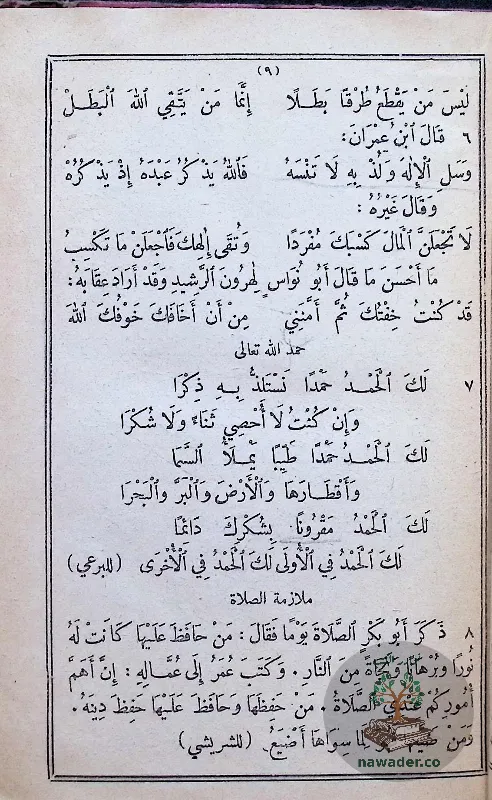 (٩)
لَيْسَ مَنْ يَقْطَعُ طُرْقًا بَطَلًا إِنَّمَا مَنْ يَتَّقِي ٱللهَ ٱلْبَطَلْ
٦ قَالَ ٱبْنُ عِمْرَانَ:
وَسَلِ ٱلْإِلٰهَ وَلُذْ بِهِ لَا تَنْسَهُ فَٱللهُ يَذْكُرُ عَبْدَهُ إِذْ يَذْكُرُهْ
وَقَالَ غَيْرُهُ:
لَا تَجْعَلَنَّ ٱلْمَالَ كَسْبَكَ مُفْرَدًا وَتُقَى إِلٰهِكَ فَٱجْعَلَنْ مَا تَكْسِبُ
مَا أَحْسَنَ مَا قَالَ أَبُو نُوَاسٍ لِهٰرُونَ ٱلرَّشِيدِ وَقَدْ أَرَادَ عِقَابَهُ:
قَدْ كُنْتُ خِفْتُكَ ثُمَّ أَمَّنَنِي مِنْ أَنْ أَخَافَكَ خَوْفُكَ ٱللهَ
حمد الله تعالى
٧ لَكَ ٱلْحَمْدُ حَمْدًا نَسْتَلِذُّ بِهِ ذِكْرَا
وَإِنْ كُنْتُ لَا أُحْصِي ثَنَاءً وَلَا شُكْرَا
لَكَ ٱلْحَمْدُ حَمْدًا طَيِّبًا يَمْلَأُ ٱلسَّمَا
وَأَقْطَارَهَا وَٱلْأَرْضَ وَٱلْبَرَّ وَٱلْبَحْرَا
لَكَ ٱلْحَمْدُ مَقْرُونًا بِشُكْرِكَ دَائِمًا
لَكَ ٱلْحَمْدُ فِي ٱلْأُولَى لَكَ ٱلْحَمْدُ فِي ٱلْأُخْرَى (للبرعي)
ملازمة الصلاة
٨ ذَكَرَ أَبُو بَكْرٍ ٱلصَّلَاةَ يَوْمًا فَقَالَ: مَنْ حَافَظَ عَلَيْهَا كَانَتْ لَهُ
نُورًا وَبُرْهَانًا وَنَجَاةً مِنَ ٱلنَّارِ. وَكَتَبَ عُمَرُ إِلَى عُمَّالِهِ: إِنَّ أَهَمَّ
أُمُورِكُمْ عِنْدِي ٱلصَّلَاةُ. مَنْ حَفِظَهَا وَحَافَظَ عَلَيْهَا حَفِظَ دِينَهُ.
وَمَنْ لِمَا سِوَاهَا أَضْيَعُ (للشريشي)
nawader.co